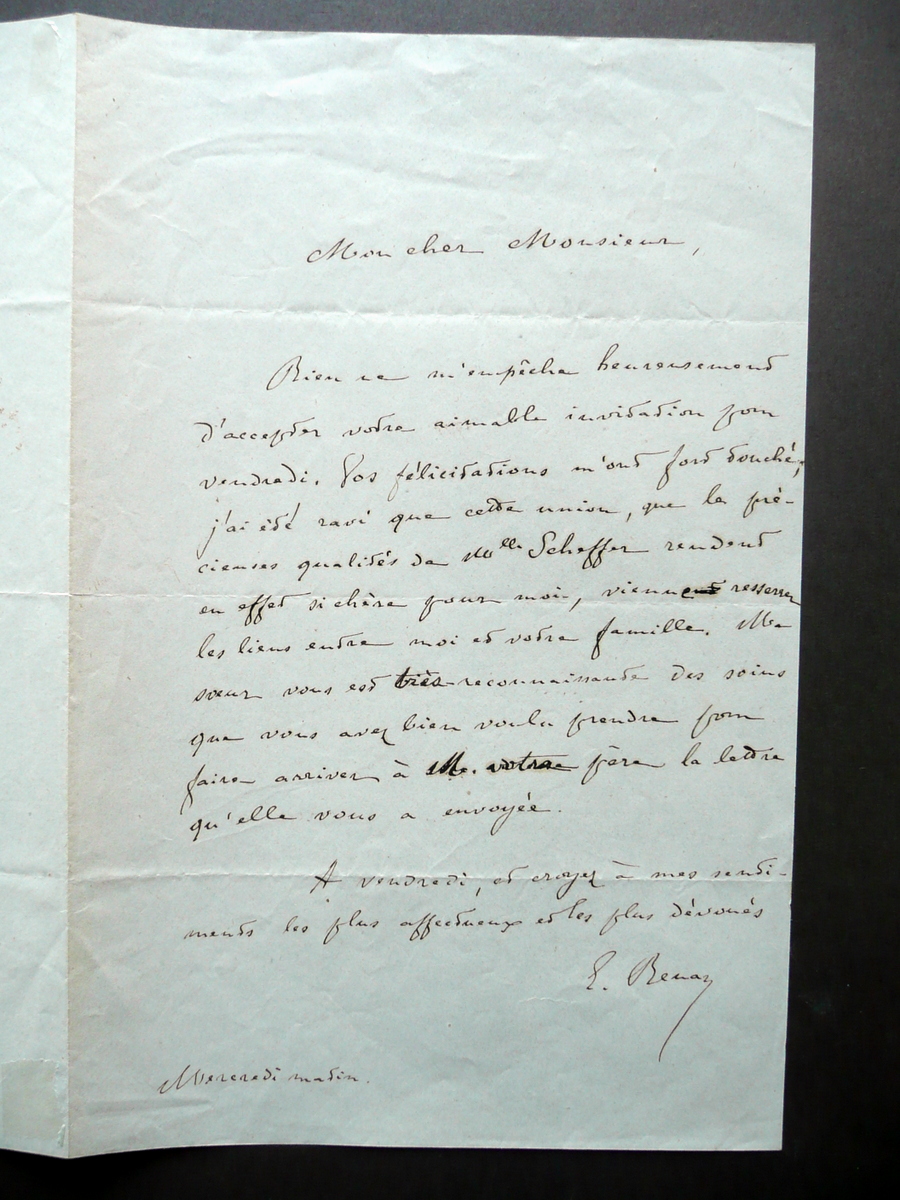 Mon cher Monsieur,
Rien ne m'empêche heureusement
d'accepter votre aimable invitation pour
vendredi. Vos félicitations m'ont fort touché;
j'ai été ravi que cette union, que les pré-
cieuses qualités de Mlle Scheffer rendent
en effet si chère pour moi, vienne resserrer
les liens entre moi et votre famille. Ma
sœur vous est très reconnaissante des soins
que vous avez bien voulu prendre pour
faire arriver à M. votre père la lettre
qu'elle vous a envoyée.
A vendredi, et croyez à mes senti-
ments les plus affectueux et les plus dévoués
E. Renan
Mercredi matin.